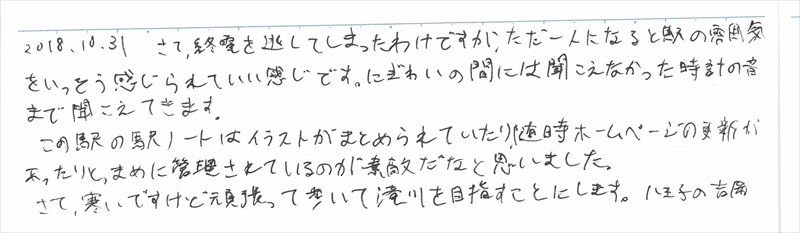 2018.10.31 さて、終電を逃してしまったわけですが、ただ一人になると駅の雰囲気
をいっそう感じられていい感じです。にぎわいの間には聞こえなかった時計の音
まで聞こえてきます。
この駅の駅ノートはイラストがまとめられていたり、随時ホームページの更新が
あったりと、まめに管理されているのが素敵だなと思いました。
さて、寒いですけど頑張って歩いて滝川を目指すことにします。 八王子の吉岡